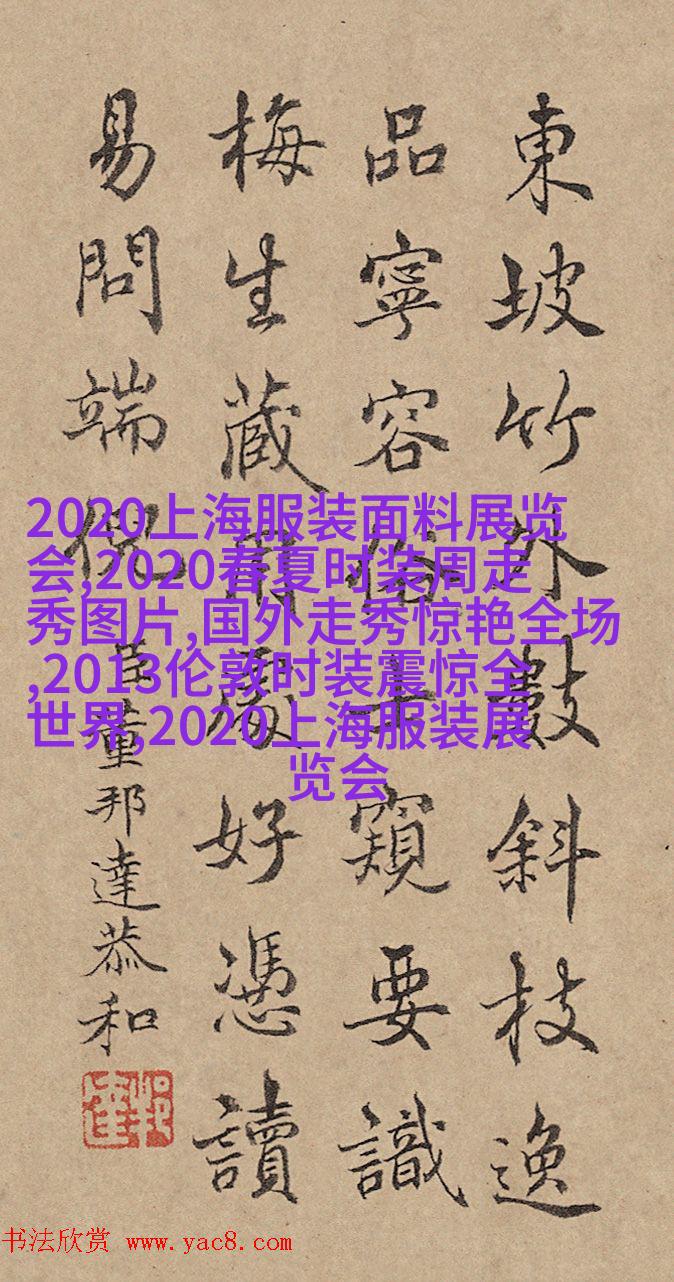 東坡竹外數斜枝逸
品寧容俗士窺要識
梅生蔵用處好憑讀
易問端倪
臣董邦達恭和
2020上海服装面料展览
会,2020春夏时装周走
秀图片,国外走秀惊艳全场
,2013伦敦时装震惊全
世界,2020上海服装展
览会
书法欣赏 www.yac8.com